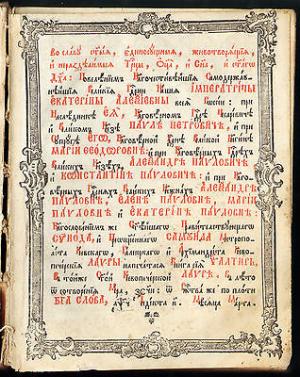 Во славу ст҃ыѧ, єдиносꙋщныѧ, животворѧщїѧ,
и нераздѣлимыѧ Трⷪ҇цы, Оц҃а, и Сн҃а, и ст҃агѡ
Дх҃а: Повелѣнїемъ Бл҃гочестивѣйшїѧ Самодержав-
нѣйшїѧ Великїѧ Гдⷭ҇рыни нашеѧ ІМПЕРАТРИЦЫ
ЕКАТЕРИНЫ АЛЕѮІЕВНЫ всеѧ Россїи: при
Наслѣдникѣ ЕѦ, Бл҃говѣрномъ Гдⷭ҇рѣ Цесаревичѣ
и Великомъ Кн҃зѣ ПАѴЛѢ ПЕТРОВИЧѢ, и при
Сꙋпрꙋгѣ ЕГѠ, Бл҃говѣрной Гдⷭ҇рынѣ Великой Кн҃гинѣ
МАРІИ ѲЕОДОРОВНѢ: при Бл҃говѣрныхъ Гдⷭ҇рѣхъ
Великихъ Кн҃зехъ АЛЕѮАНДРѢ ПАѴЛОВИЧѢ
и КѠНСТАНТІНѢ ПАѴЛОВИЧѢ: и при Бл҃го-
вѣрныхъ Великихъ Кн҃жнахъ АЛЕѮАНДРѢ
ПАѴЛОВНѢ, ЕЛЕНѢ ПАѴЛОВНѢ, МАРІИ
ПАѴЛОВНѢ и ЕКАТЕРІНѢ ПАѴЛОВНѢ:
Бл҃гословенїемъ же Ст҃ѣйшагѡ Правительствꙋющагѡ
СѴНОДА, и Преѡсщ҃еннагѡ САМꙊИЛА Митропо-
лита Кїевскагѡ, и Галицкагѡ и Архїмандрита Кїево-
печерскїѧ ЛАѴРЫ: напечатасѧ Книга сїѧ ѰАЛТИРЬ,
въ тойже Ст҃ой Кїевопечерской ЛАѴРѢ, въ лѣто
ѿ сотворенїѧ Мїра, ѿ Рж҇тва же по плоти
БГ҃А СЛОВА, індїкта Мѣсѧца Марта.